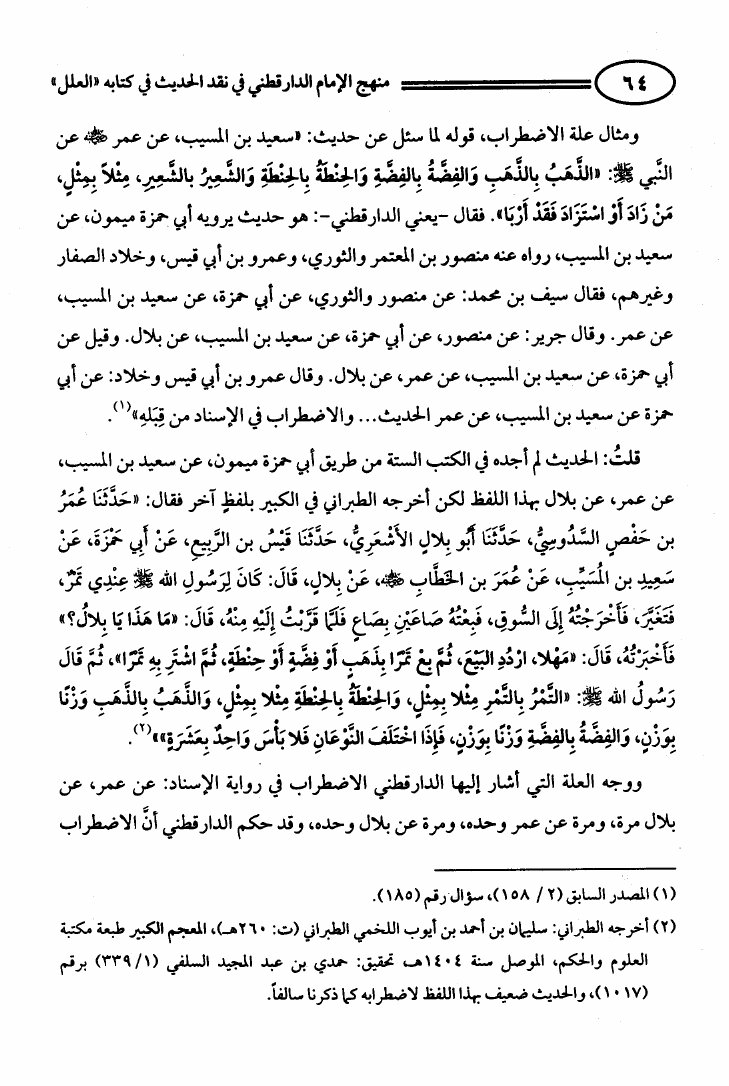 ٦٤ منهج الإمام الدارقطني في نقد الحديث في كتابه «العلل»
ومثال علة الاضطراب، قوله لما سئل عن حديث: «سعيد بن المسيب، عن عمر ﵁ عن
النَّبي ﷺ: «الذَّهَبُ بِالذَّهَبِ وَالفِضَّةُ بِالفِضَّةِ وَالحِنْطَةُ بِالحِنْطَةِ وَالشَّعِيرُ بالشَّعِيرِ، مِثْلاً بِمِثْلٍ،
مَنْ زَادَ أَوْ اسْتَزَادَ فَقَدْ أَرْبَا». فقال -يعني الدارقطني-: هو حديث يرويه أبي حمزة ميمون، عن
سعيد بن المسيب، رواه عنه منصور بن المعتمر والثوري، وعمرو بن أبي قيس، وخلاد الصفار
وغيرهم، فقال سيف بن محمد: عن منصور والثوري، عن أبي حمزة، عن سعيد بن المسيب،
عن عمر. وقال جرير: عن منصور، عن أبي حمزة، عن سعيد بن المسيب، عن بلال. وقيل عن
أبي حمزة، عن سعيد بن المسيب، عن عمر، عن بلال. وقال عمرو بن أبي قيس وخلاد: عن أبي
حمزة عن سعيد بن المسيب، عن عمر الحديث... والاضطراب في الإسناد من قِبَلهِ»(١).
قلتُ: الحديث لم أجده في الكتب الستة من طريق أبي حمزة ميمون، عن سعيد بن المسيب،
عن عمر، عن بلال بهذا اللفظ لكن أخرجه الطبراني في الكبير بلفظٍ آخر فقال: «حَدَّثَنَا عُمَرُ
بن حَفْصٍ السَّدُوسِيُّ، حَدَّثَنَا أَبُو بِلالٍ الأَشْعَرِيُّ، حَدَّثَنَا قَيْسُ بن الرَّبِيعِ، عَنْ أَبِي حَمْزَةَ، عَنْ
سَعِيدِ بن المُسَيِّبِ، عَنْ عُمَرَ بن الخَطَّابِ ﵁، عَنْ بِلالٍ، قَالَ: كَانَ لِرَسُولِ الله ﷺ عِنْدِي تَمْرٌ،
فَتَغَيَّرَ، فَأَخْرَجْتُهُ إِلَى السُّوقِ، فَبِعْتُهُ صَاعَيْنِ بِصَاعٍ فَلَمَّا قَرَّبْتُ إِلَيْهِ مِنْهُ، قَالَ: «مَا هَذَا يَا بِلالُ؟»
فَأَخْبَرْتُهُ، قَالَ: «مَهْلا، ارْدُدِ البَيْعَ، ثُمَّ بِعْ تَمْرًا بِذَهَبٍ أَوْ فِضَّةٍ أَوْ حِنْطَةٍ، ثُمَّ اشْتَرِ بِهِ تَمْرًا»، ثُمَّ قَالَ
رَسُولُ الله ﷺ: «التَّمْرُ بِالتَّمْرِ مِثْلا بِمِثْلٍ، وَالحِنْطَةُ بِالحِنْطَةِ مِثْلا بِمِثْلٍ، وَالذَّهَبُ بِالذَّهَبِ وَزْنًا
بِوَزْنٍ، وَالفِضَّةُ بِالفِضَّةِ وَزْنًا بِوَزْنٍ، فَإِذَا اخْتَلَفَ النَّوْعَانِ فَلا بَأْسَ وَاحِدٌ بِعَشَرَةٍ»»(٢).
ووجه العلة التي أشار إليها الدارقطني الاضطراب في رواية الإسناد: عن عمر، عن
بلال مرة، ومرة عن عمر وحده، ومرة عن بلال وحده، وقد حكم الدارقطني أنَّ الاضطراب
(١) المصدر السابق (٢/ ١٥٨)، سؤال رقم (١٨٥).
(٢) أخرجه الطبراني: سليمان بن أحمد بن أيوب اللخمي الطبراني (ت: ٢٦٠هـ)، المعجم الكبير طبعة مكتبة
العلوم والحكم، الموصل سنة ١٤٠٤هـ، تحقيق: حمدي بن عبد المجيد السلفي (١/ ٣٣٩) برقم
(١٠١٧)، والحديث ضعيف بهذا اللفظ لاضطرابه كما ذكرنا سالفاً.